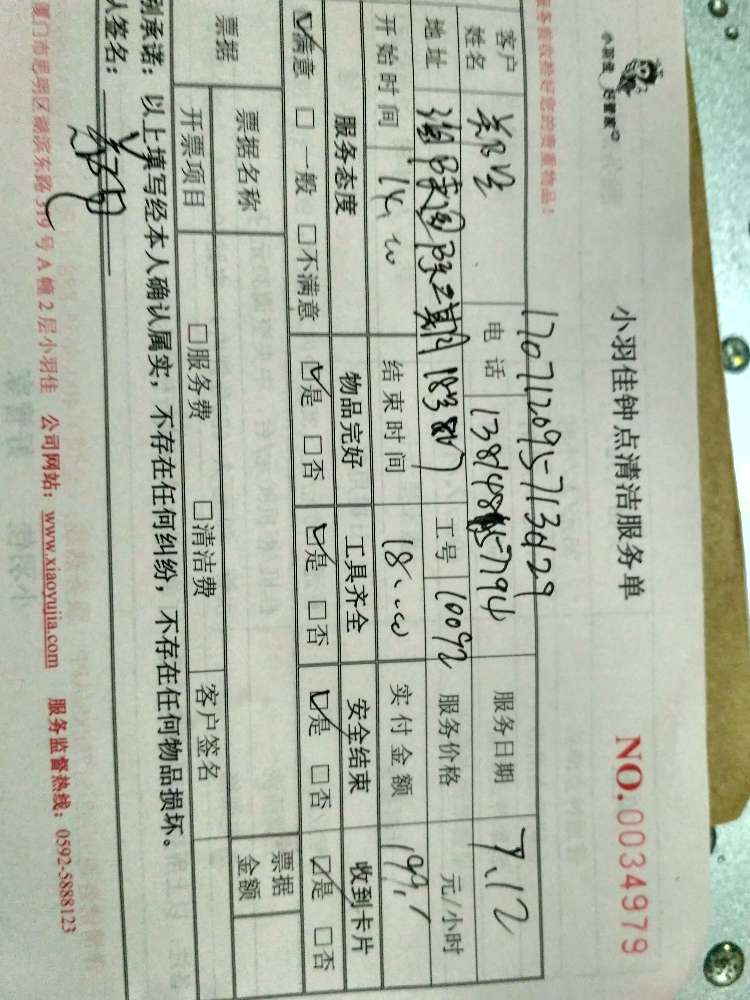 小羽佳 好管家
小羽佳钟点清洁服务单
NO.0034979
您的贵重物品！
17071209571309
客户姓名 电话 服务日期 7.12
地址 工号 10092 服务价格 元/小时
开始时间 14:00 结束时间 18:00 实付金额 199
服务态度 物品完好 工具齐全 安全结束 收到卡片
☑满意 □一般 □不满意 ☑是 □否 ☑是 □否 ☑是 □否 ☑是 □否
票据 票据名称 票据金额
开票项目 □服务费 □清洁费 客户签名
别承诺：以上填写经本人确认属实，不存在任何纠纷，不存在任何物品损坏。
人签名：
厦门市思明区湖滨东路319号A幢2层小羽佳 公司网站：www.xiaoyujia.com 服务监督热线：0592-5888123